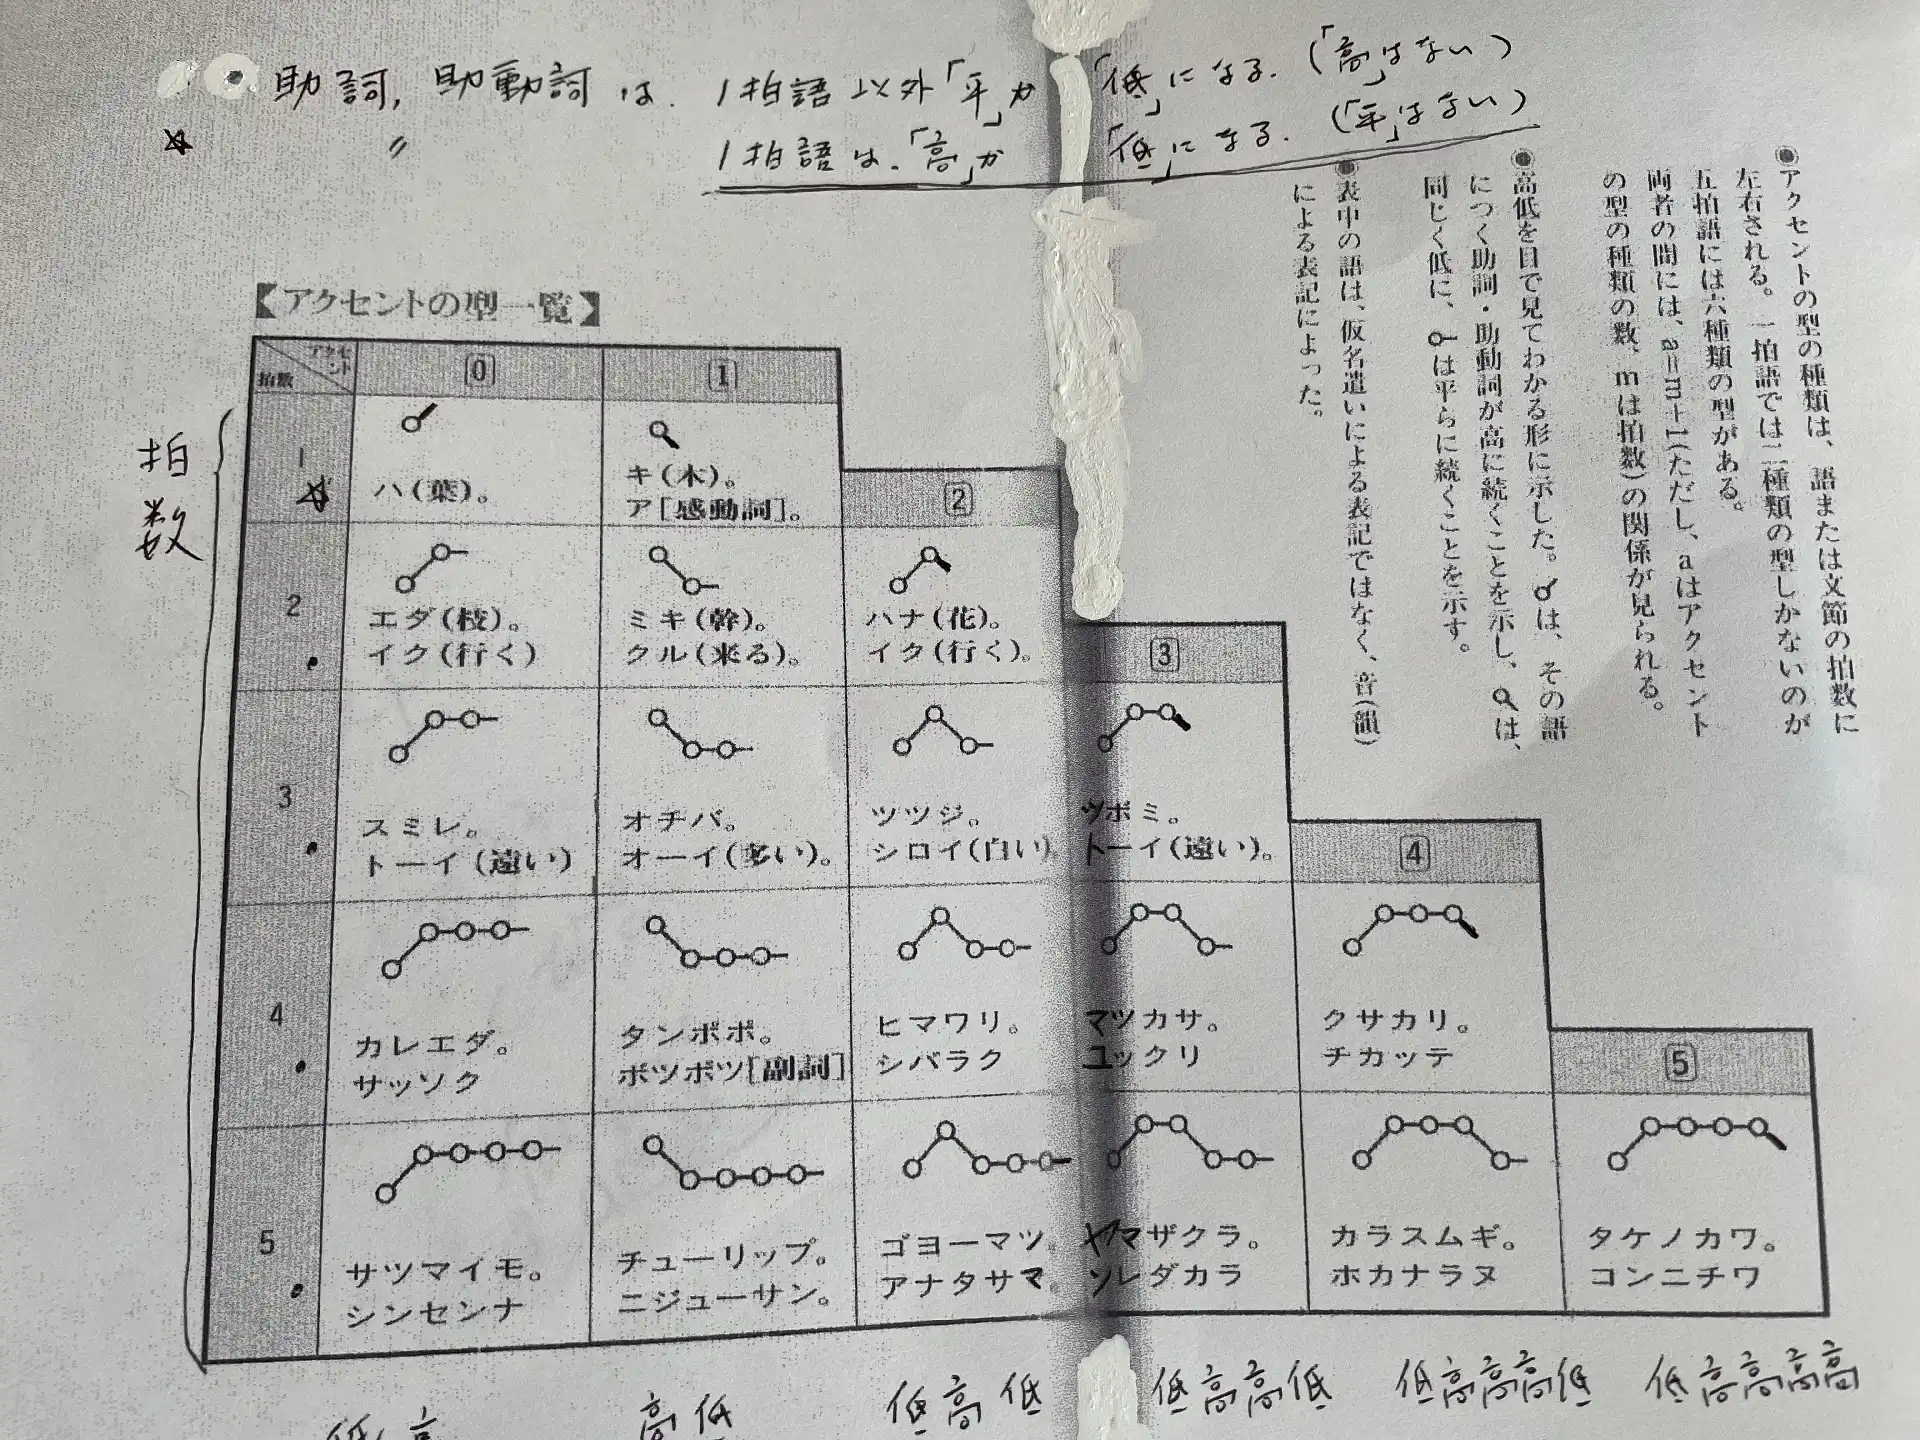 助詞, 助動詞は、1拍語以外「平」か「低」になる.(「高」はない)
〃 1拍語は、「高」か「低」になる.(「平」はない)
◉アクセントの型の種類は、語または文節の拍数に
左右される。一拍語では二種類の型しかないのが
五拍語には六種類の型がある。
両者の間には、a=m+1(ただし、aはアクセント
の型の種類の数、mは拍数)の関係が見られる。
◉高低を目で見てわかる形に示した。は、その語
につく助詞・助動詞が高に続くことを示し、は、
同じく低に、は平らに続くことを示す。
◉表中の語は、仮名遣いによる表記ではなく、音(韻)
による表記によった。
【アクセントの型一覧】
アクセント
拍数
0
1
2
3
4
5
拍数
1
ハ(葉)。
キ(木)。
ア[感動詞]。
2
エダ(枝)。
イク(行く)
ミキ(幹)。
クル(来る)。
ハナ(花)。
イク(行く)。
3
スミレ。
トーイ(遠い)
オチバ。
オーイ(多い)。
ツツジ。
シロイ(白い)
ツボミ。
トーイ(遠い)。
4
カレエダ。
サッソク
タンポポ。
ポツポツ[副詞]
ヒマワリ。
シバラク
マツカサ。
ユックリ
クサカリ。
チカッテ
5
サツマイモ。
シンセンナ
チューリップ。
ニジューサン。
ゴヨーマツ。
アナタサマ。
ヤマザクラ。
ソレダカラ
カラスムギ。
ホカナラヌ
タケノカワ。
コンニチワ
低高
高低
低高低
低高高低
低高高高低
低高高高高